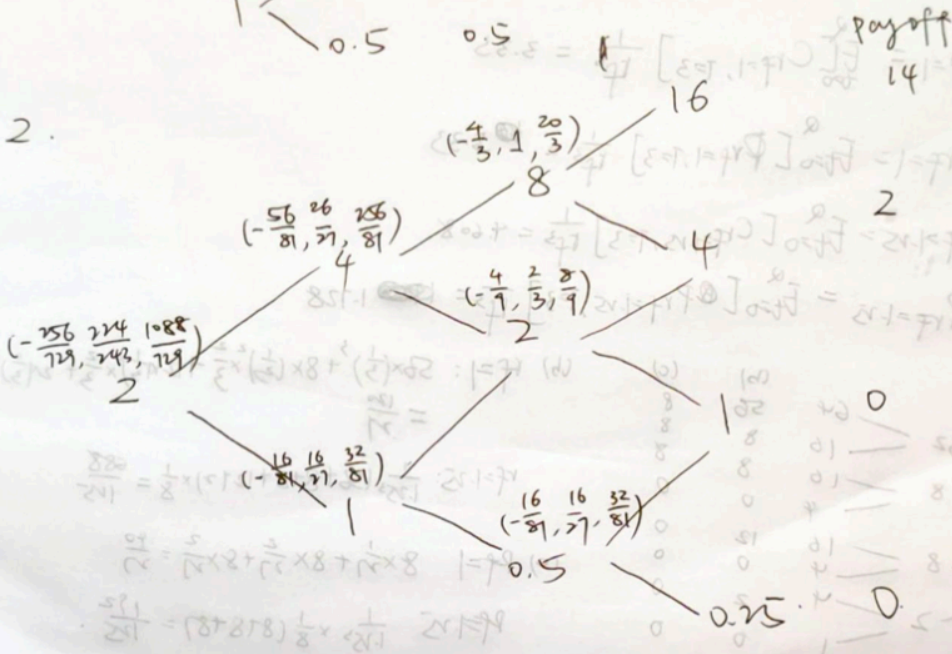 0.5 0.5 1 payoff
14
2.
16
(-4/3, 1, 20/3)
8
2
(-56/81, 26/27, 256/81)
4
4
(-4/9, 2/3, 8/9)
2
(-256/729, 224/243, 1088/729)
2
0
1
(-16/81, 16/27, 32/81)
1
(-16/81, 16/27, 32/81)
0.5
0.25 0.